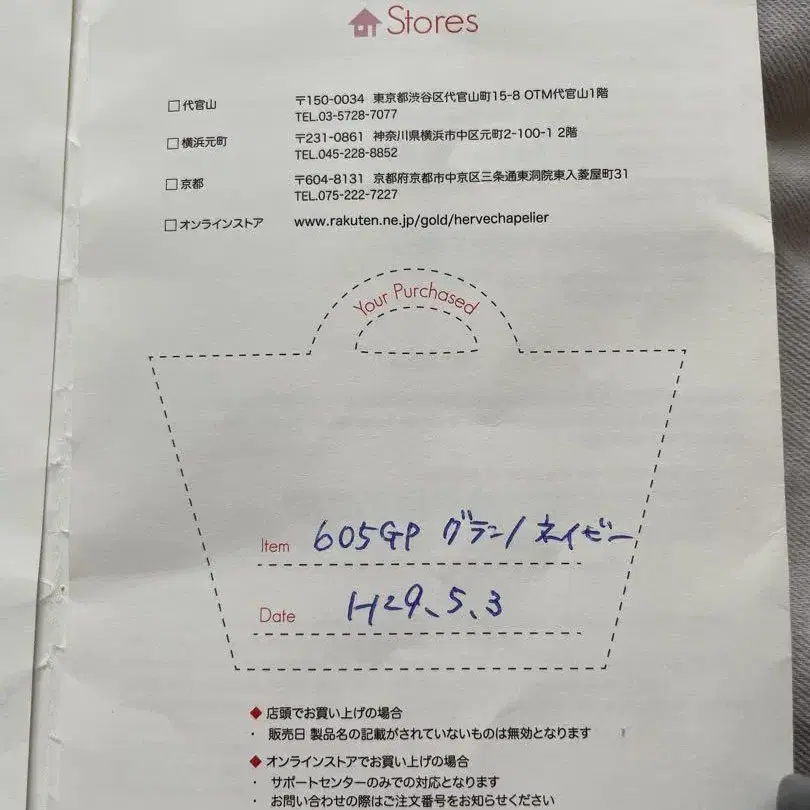 Stores
□代官山 〒150-0034 東京都渋谷区代官山町15-8 OTM代官山1階
TEL.03-5728-7077
□横浜元町 〒231-0861 神奈川県横浜市中区元町2-100-1 2階
TEL.045-228-8852
□京都 〒604-8131 京都府京都市中京区三条通東洞院東入菱屋町31
TEL.075-222-7227
□オンラインストア www.rakuten.ne.jp/gold/hervechapelier
Your Purchased
Item 605GP グラン/ネイビー
Date H29.5.3
◆店頭でお買い上げの場合
・ 販売日 製品名の記載がされていないものは無効となります
◆オンラインストアでお買い上げの場合
・ サポートセンターのみでの対応となります
・ お問い合わせの際はご注文番号をお知らせください